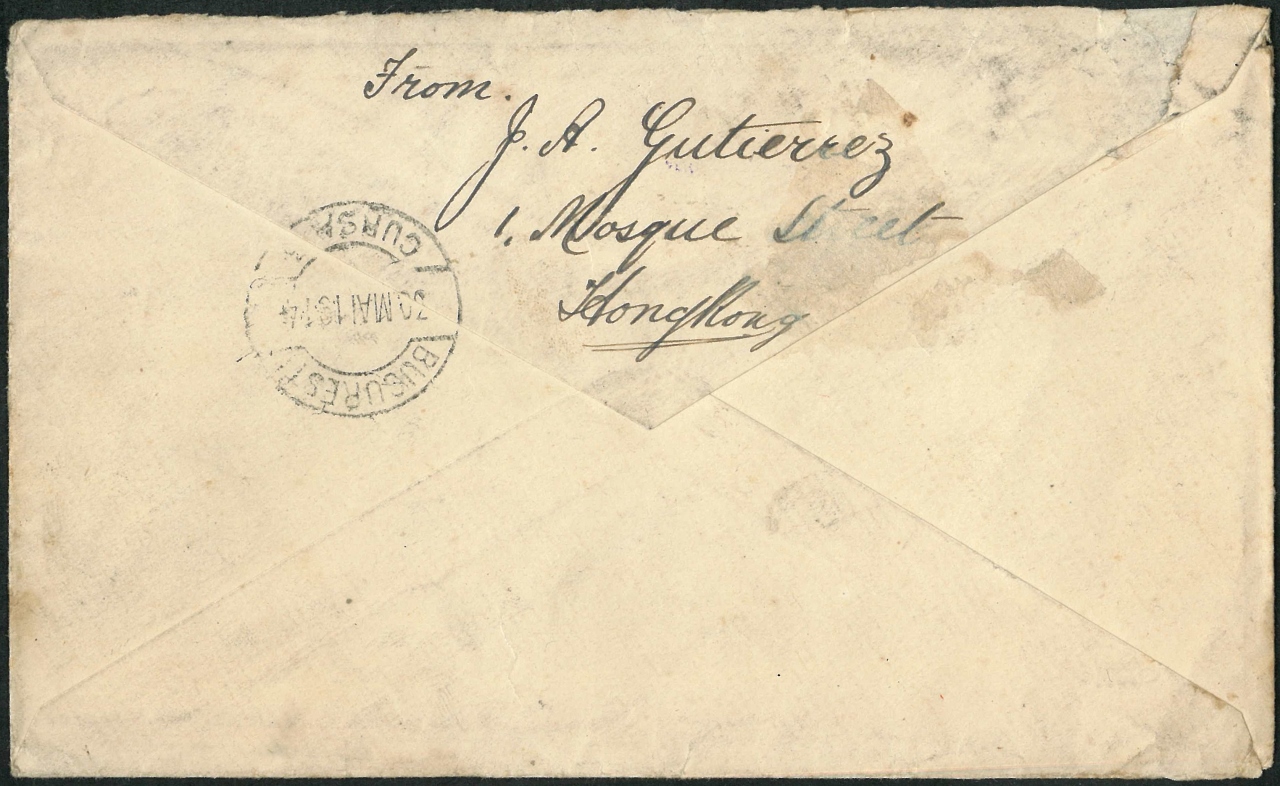 From.
J. A. Gutierrez
1, Mosque Street
HongKong
BUCUREST
30 MAI 1914
CURSA